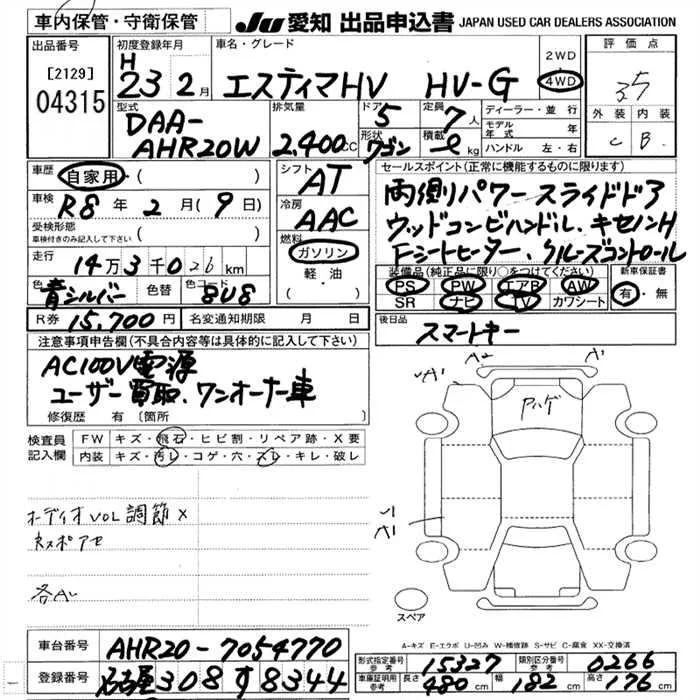 車内保管・守衛保管
JU 愛知 出品申込書 JAPAN USED CAR DEALERS ASSOCIATION
出品番号
[2129]
04315
初度登録年月
H
23 2月
車名・グレード
エスティマHV HV-G
2WD
4WD
評価点
3.5
外装 内装
C B
型式
DAA-
AHR20W
排気量
2,400CC
ドア
5
形状
ワゴン
定員
7人
積載
kg
ディーラー・並行
モデル年式 年
ハンドル 左・右
車歴
自家用・( )
車検
R8年2月(9日)
受検形態
車検付きのみ記入して下さい
( )
走行
14万3千026km
色
青シルバー
色替
色コード
8V8
R券 15,700円
名変通知期限 月 日
シフト
AT
冷房
AAC
燃料
ガソリン
軽・油
( )
セールスポイント(正常に機能するものに限ります)
両側パワースライドドア
ウッドコンビハンドル、キセノンH
Fシートヒーター、クルーズコントロール
装備品(純正品に限り○をつけてください)
PS PW エアB AW
SR ナビ TV カワシート
新車保証書
有・無
後日品
スマートキー
注意事項申告欄(不具合内容等は具体的に記入して下さい)
AC100V電源
ユーザー買取、ワンオーナー車
修復歴 有 〔箇所 〕
検査員記入欄
FW キズ・飛石・ヒビ割・リペア跡・X要
内装 キズ・汚レ・コゲ・穴・スレ・キレ・破レ
オーディオVOL調節×
各AU
A2 A1
A1
Aハゲ
A1
スペア
A-キズ E-エクボ U-凹み W-補修跡 S-サビ C-腐食 XX-交換済
車台番号 AHR20-7054770
登録番号 名古屋308す8344
形式指定番号 参考 15327
類別区分番号 参考 0266
車庫証明用 参考 長さ 480cm 幅 182cm 高さ 176cm